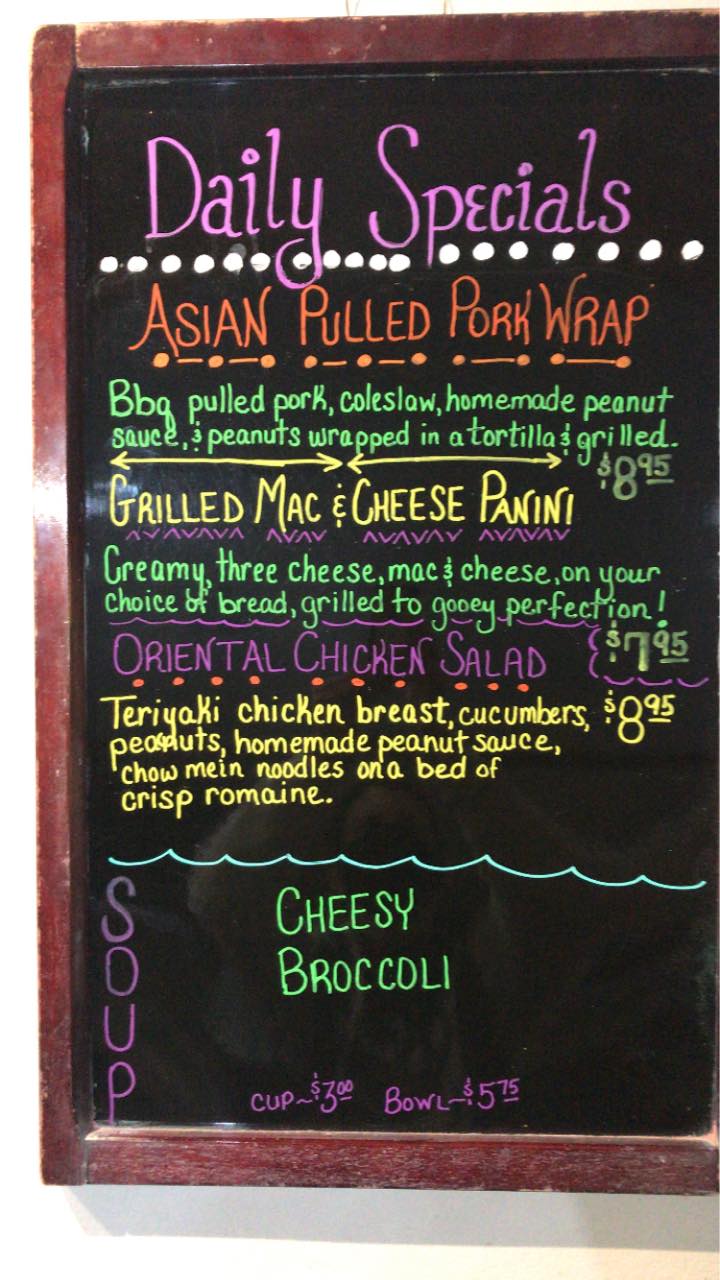 Daily Specials
ASIAN PULLED PORK WRAP
Bbq pulled pork, coleslaw, homemade peanut
sauce, & peanuts wrapped in a tortilla & grilled.
$8.95
GRILLED MAC & CHEESE PANINI
Creamy, three cheese, mac & cheese, on your
choice of bread, grilled to gooey perfection!
ORIENTAL CHICKEN SALAD $7.95
Teriyaki chicken breast, cucumbers, $8.95
peanuts, homemade peanut sauce,
chow mein noodles on a bed of
crisp romaine.
SOUP
CHEESY
BROCCOLI
CUP~$3.00 BOWL~$5.75